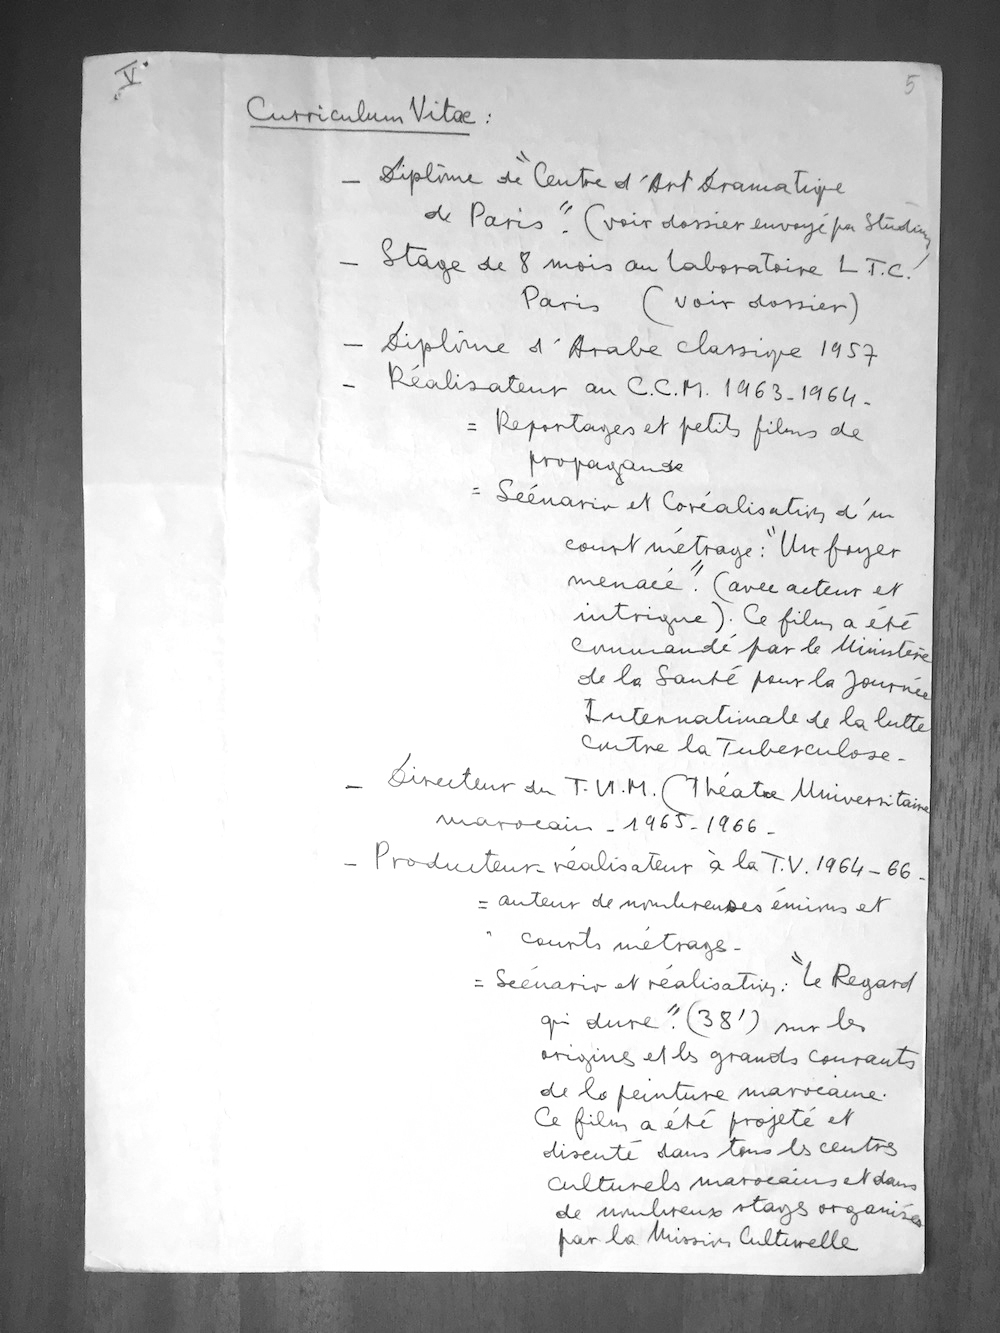 V
5
Curriculum Vitae :
— Diplôme de "Centre d'Art Dramatique
de Paris". (voir dossier envoyé par
— Stage de 8 mois au laboratoire L.T.C.
Paris (voir dossier)
— Diplôme d'Arabe classique 1957
— Réalisateur au C.C.M. 1963-1964-
= Reportages et petits films de
propagande
= Scénario et Coréalisation d'un
court métrage : "Un foyer
menacé". (avec acteur et
intrigue). Ce film a été
commandé par le Ministère
de la Santé pour la Journée
Internationale de la lutte
contre la Tuberculose -
— Directeur du T.U.M. (Théatre Universitaire
marocain - 1965-1966 -
— Producteur-réalisateur à la T.V. 1964-66 -
= auteur de nombreuses émissions et
courts métrages -
= Scénario et réalisation : "Le Regard
qui dure". (38') sur les
origines et les grands courants
de la peinture marocaine.
Ce film a été projeté et
discuté dans tous les centres
culturels marocains et dans
de nombreux stages organisés
par la Mission Culturelle